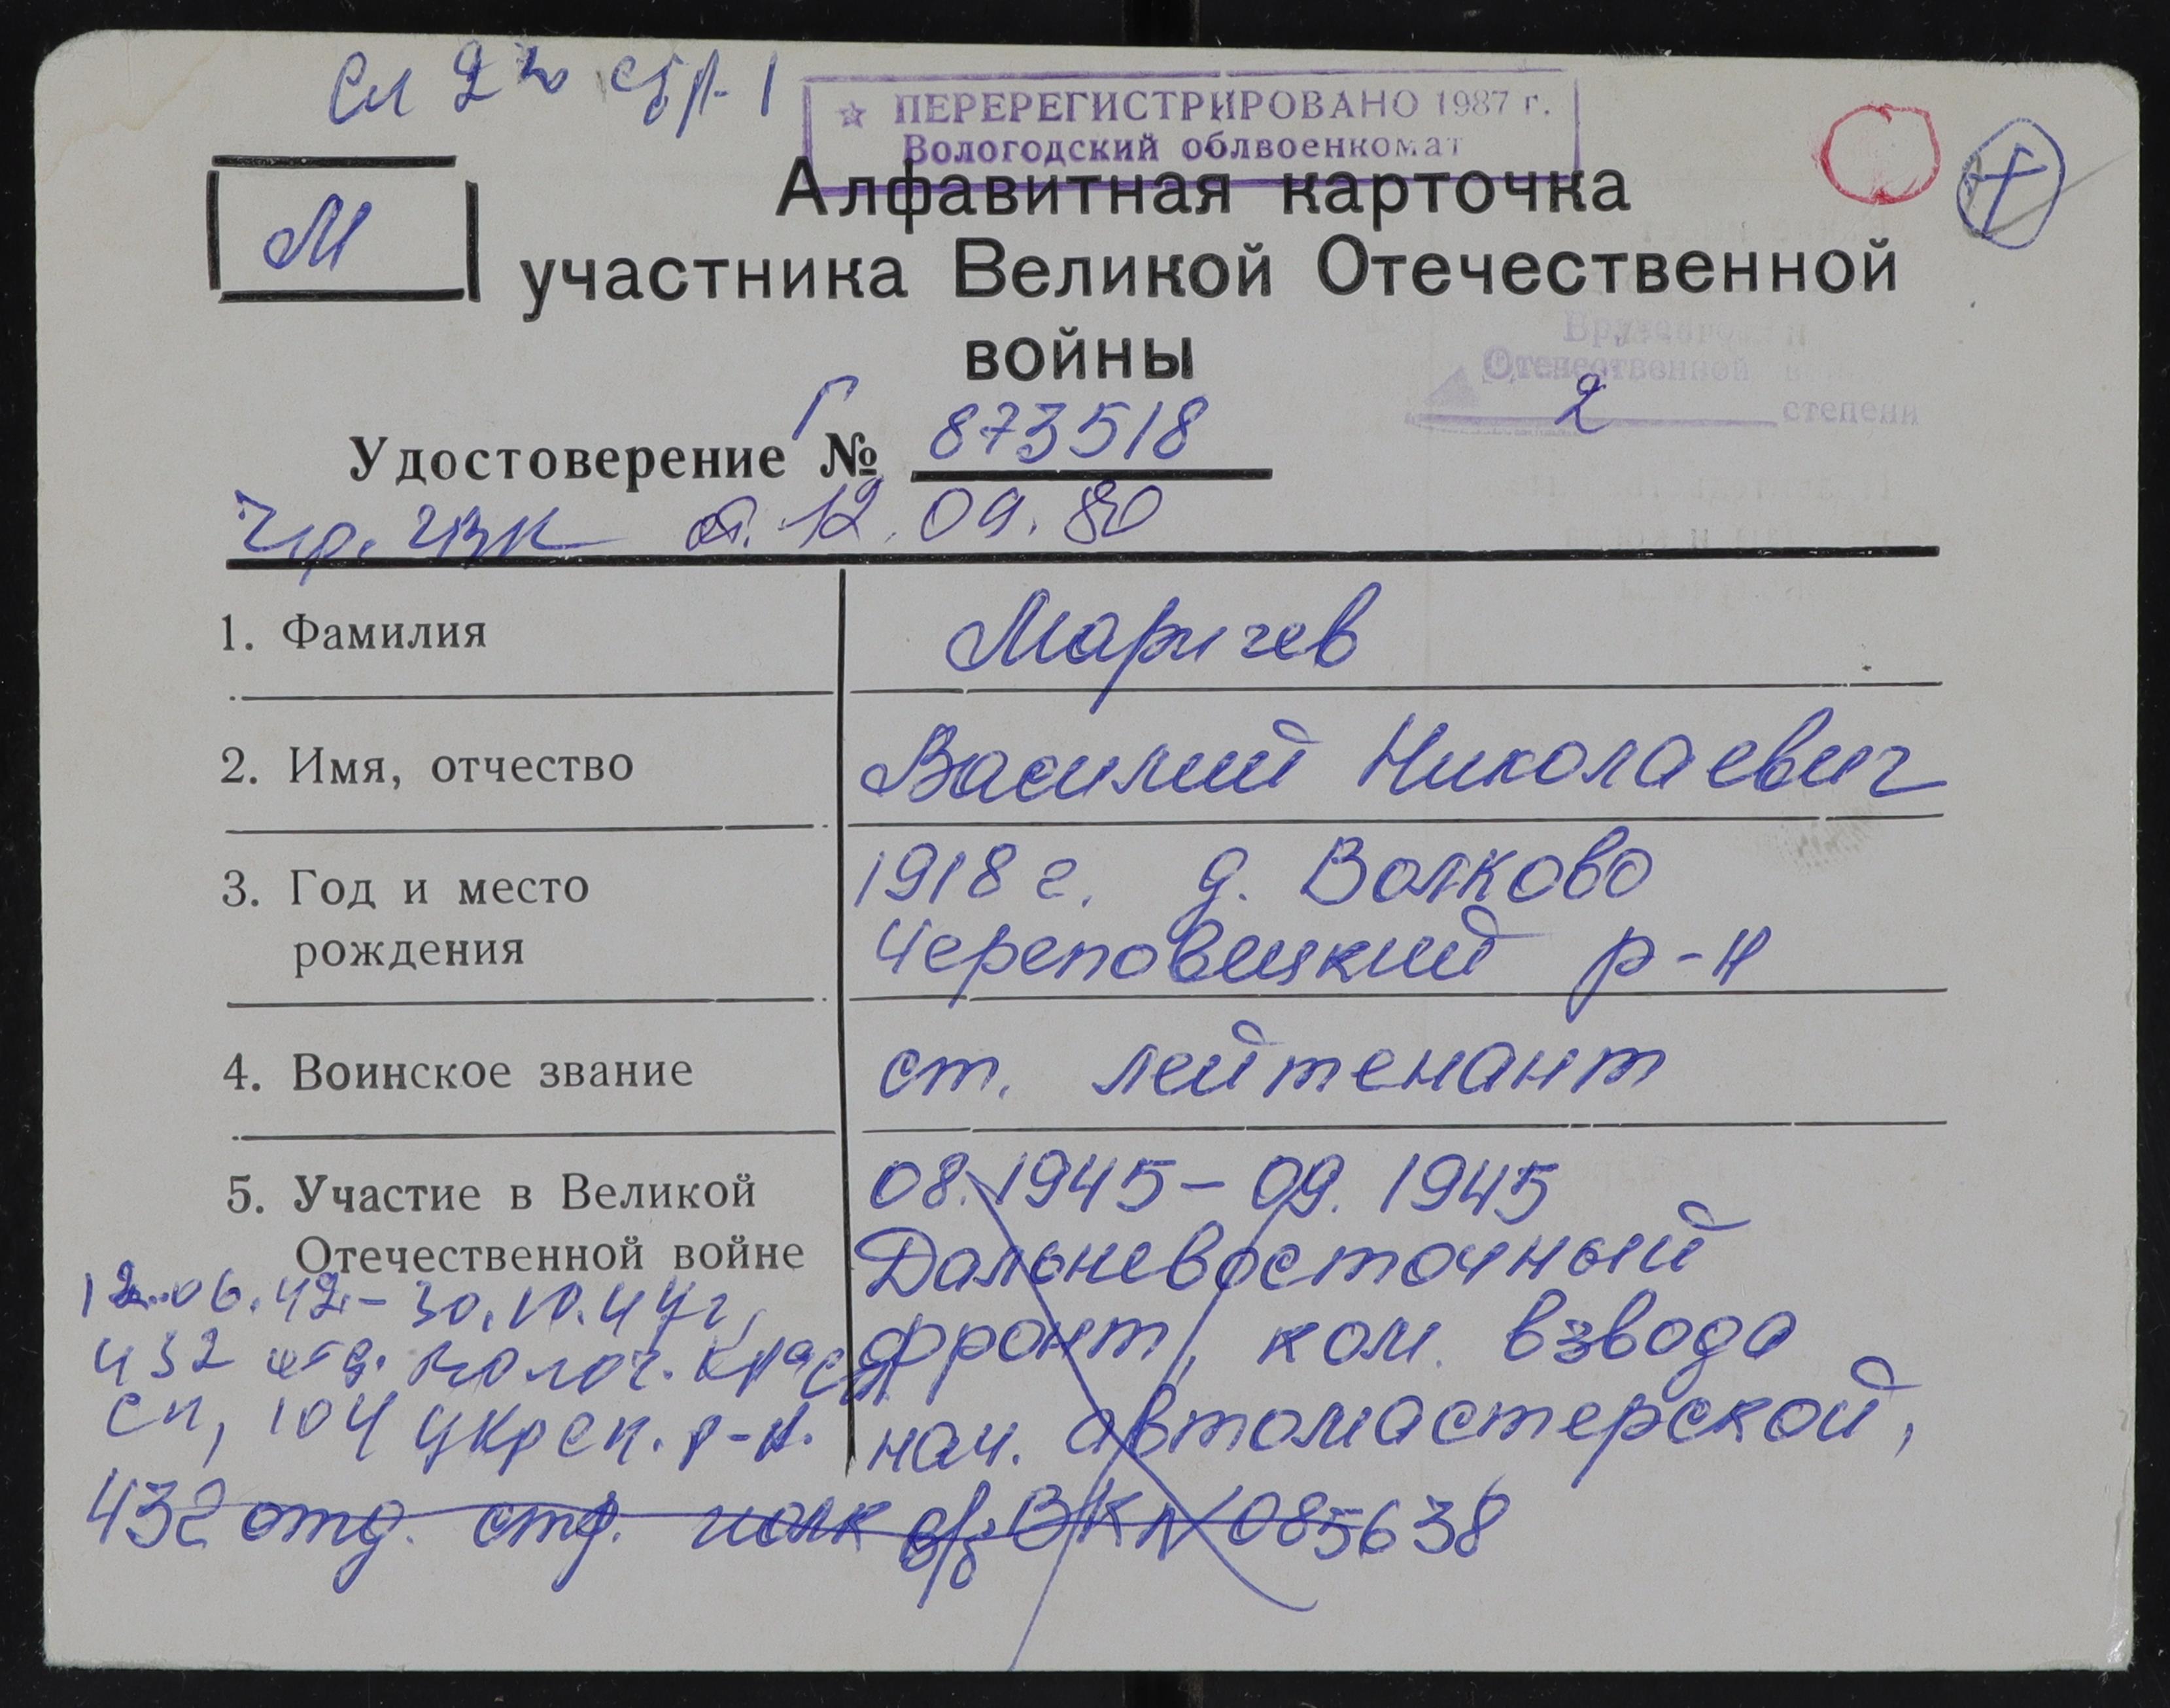 См 2 стр. 1
☆ ПЕРЕРЕГИСТРИРОВАНО 1987 г.
Вологодский облвоенкомат
М
Алфавитная карточка
участника Великой Отечественной
войны
Отечественной
2 степени
Удостоверение Г № 873518
от. 12.09.80
1. Фамилия
Маричев
2. Имя, отчество
Василий Николаевич
3. Год и место
рождения
1918 г. д. Волково
Череповецкий р-н
4. Воинское звание
ст. лейтенант
5. Участие в Великой
Отечественной войне
08.1945 – 09.1945
Дальневосточный
фронт, ком. взвода
нач. автомастерской,
12.06.42 – 30.10.44г,
432 отд. Краси
сп, 104 укреп. р-н.
432 отд. стр. полк в/з ВК № 085638